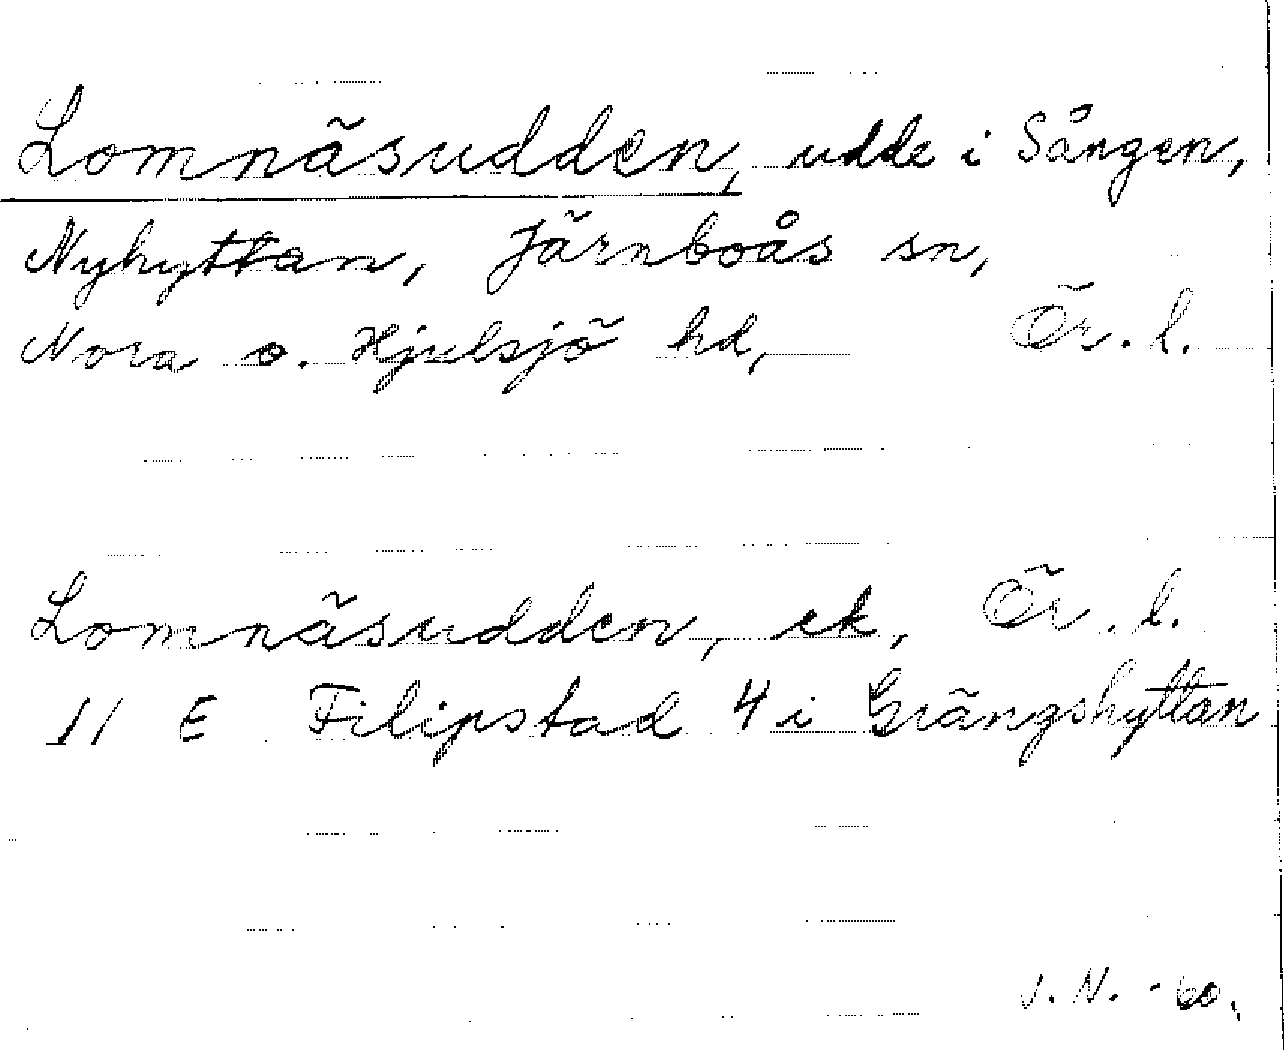 Lomnäsudden, udde i Sången,
Nyhyttan, Järnboås sn,
Nora o. Hjulsjö hd, Ör. l.
Lomnäsudden, ek, Ör. l.
11 E Filipstad 4 i Grängshyttan
J. N. -60.